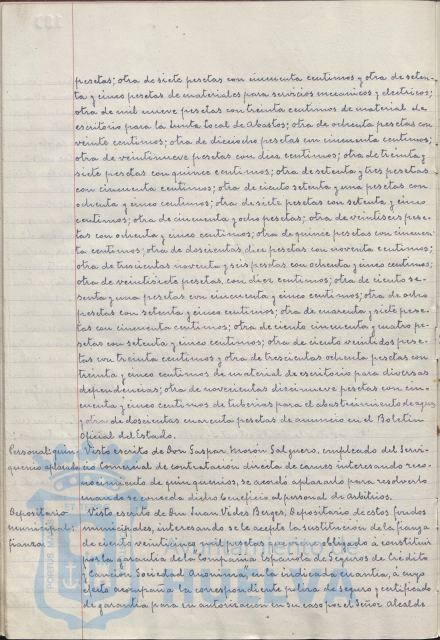 pesetas; otra de siete pesetas con cincuenta centimos y otra de seten-
ta y cinco pesetas de materiales para servicios mecanicos y electricos;
otra de mil nueve pesetas con treinta centimos de material de
escritorio para la Junta local de Abastos; otra de ochenta pesetas con
veinte centimos; otra de dieciocho pesetas con cincuenta centimos;
otra de veintinueve pesetas con diez centimos; otra de treinta y
siete pesetas con quince centimos; otra de setenta y tres pesetas
con cincuenta centimos; otra de ciento setenta y una pesetas con
ochenta y cinco centimos; otra de siete pesetas con setenta y cinco
centimos; otra de cincuenta y ocho pesetas; otra de veintiseis pese-
tas con ochenta y cinco centimos; otra de quince pesetas con cincuen-
ta centimos; otra de doscientas diez pesetas con noventa centimos;
otra de trescientas noventa y seis pesetas con ochenta y cinco centimos;
otra de veintisiete pesetas con diez centimos; otra de ciento se-
senta y una pesetas con cincuenta y cinco centimos; otra de ocho
pesetas con setenta y cinco centimos; otra de cuarenta y siete pese-
tas con cincuenta centimos; otra de ciento cincuenta y cuatro pe-
setas con setenta y cinco centimos; otra de ciento veintidos pese-
tas con treinta centimos y otra de trescientas ochenta pesetas con
treinta y cinco centimos de material de escritorio para diversas
dependencias; otra de novecientas diecinueve pesetas con cin-
cuenta y cinco centimos de tuberias para el abastecimiento de agua
y otra de doscientas cuarenta pesetas de anuncio en el Boletin
Oficial del Estado.
Personal: quin- Visto escrito de Don Gaspar Morón Salguero, empleado del Servi-
quenio aplazado cio Comercial de contratación directa de carnes interesando reco-
nocimiento de quinquenios, se acordó aplazarlo para resolverlo
cuando se conceda dicho beneficio al personal de Arbitrios.
Depositario Visto escrito de Don Juan Vides Berges, Depositario de estos fondos
municipal: municipales, interesando se le acepte la sustitución de la fianza
fianza de ciento veinticinco mil pesetas que está obligado á constituir
por la garantia de la Compañia Española de Seguros de Crédito
y Caución Sociedad Anonima", en la indicada cuantia, á cuyo
efecto acompaña la correspondiente poliza de seguro y certificado
de garantia para su autorización en su caso por el Señor Alcalde